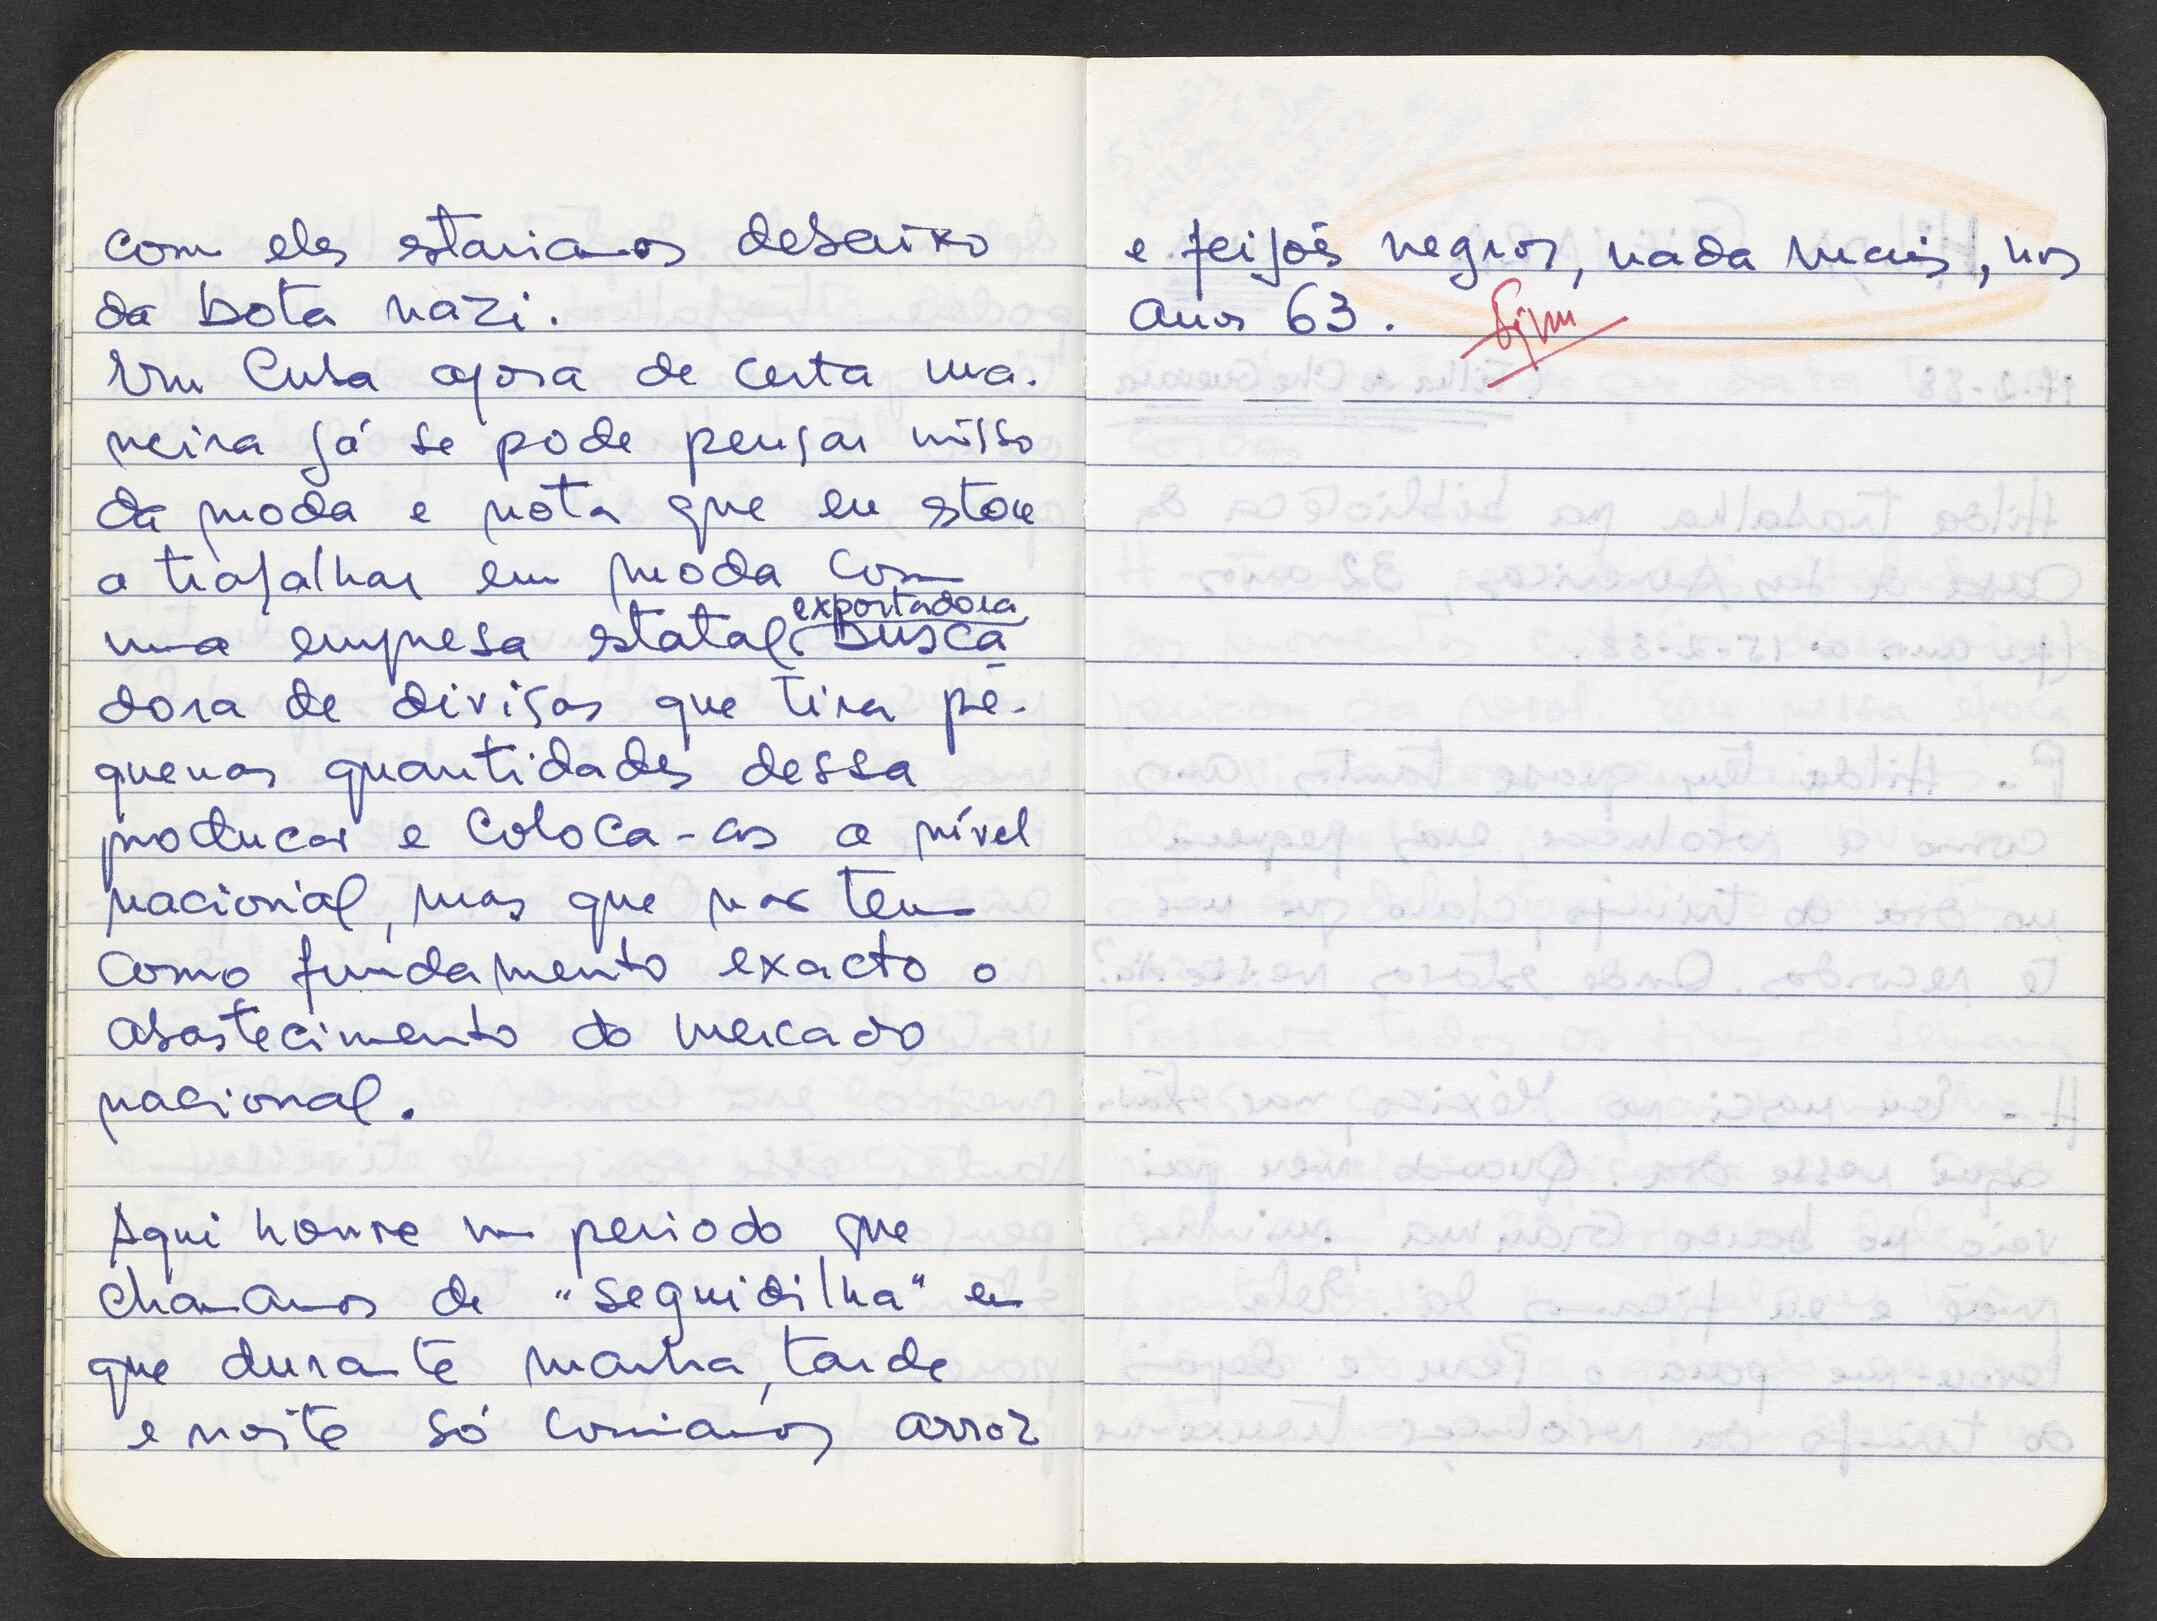 com eles estariamos debaixo
da bota nazi.
Em Cuba agora de certa ma-
neira já se pode pensar nisso
da moda e nota que eu estou
a trabalhar em moda com
uma empresa estatal exportadora busca
dora de divisas que tira pe-
quenas quantidades dessa
producao e coloca-as a nível
nacional, mas que nao tem
como fundamento exacto o
abastecimento do mercado
nacional.
Aqui houve um periodo que
chamamos de "seguidilha" em
que durante manha, tarde
e noite só comiamos arroz
e feijões negros, nada mais, nos
anos 63. fim